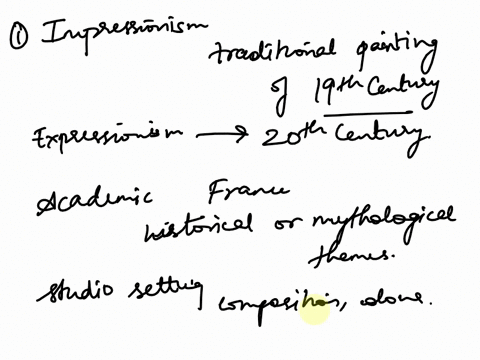 ① Impressionism
traditional painting
of 19th Century
Expressionism → 20th Century
Academic France
historical or mythological
themes.
studio setting composition, done.